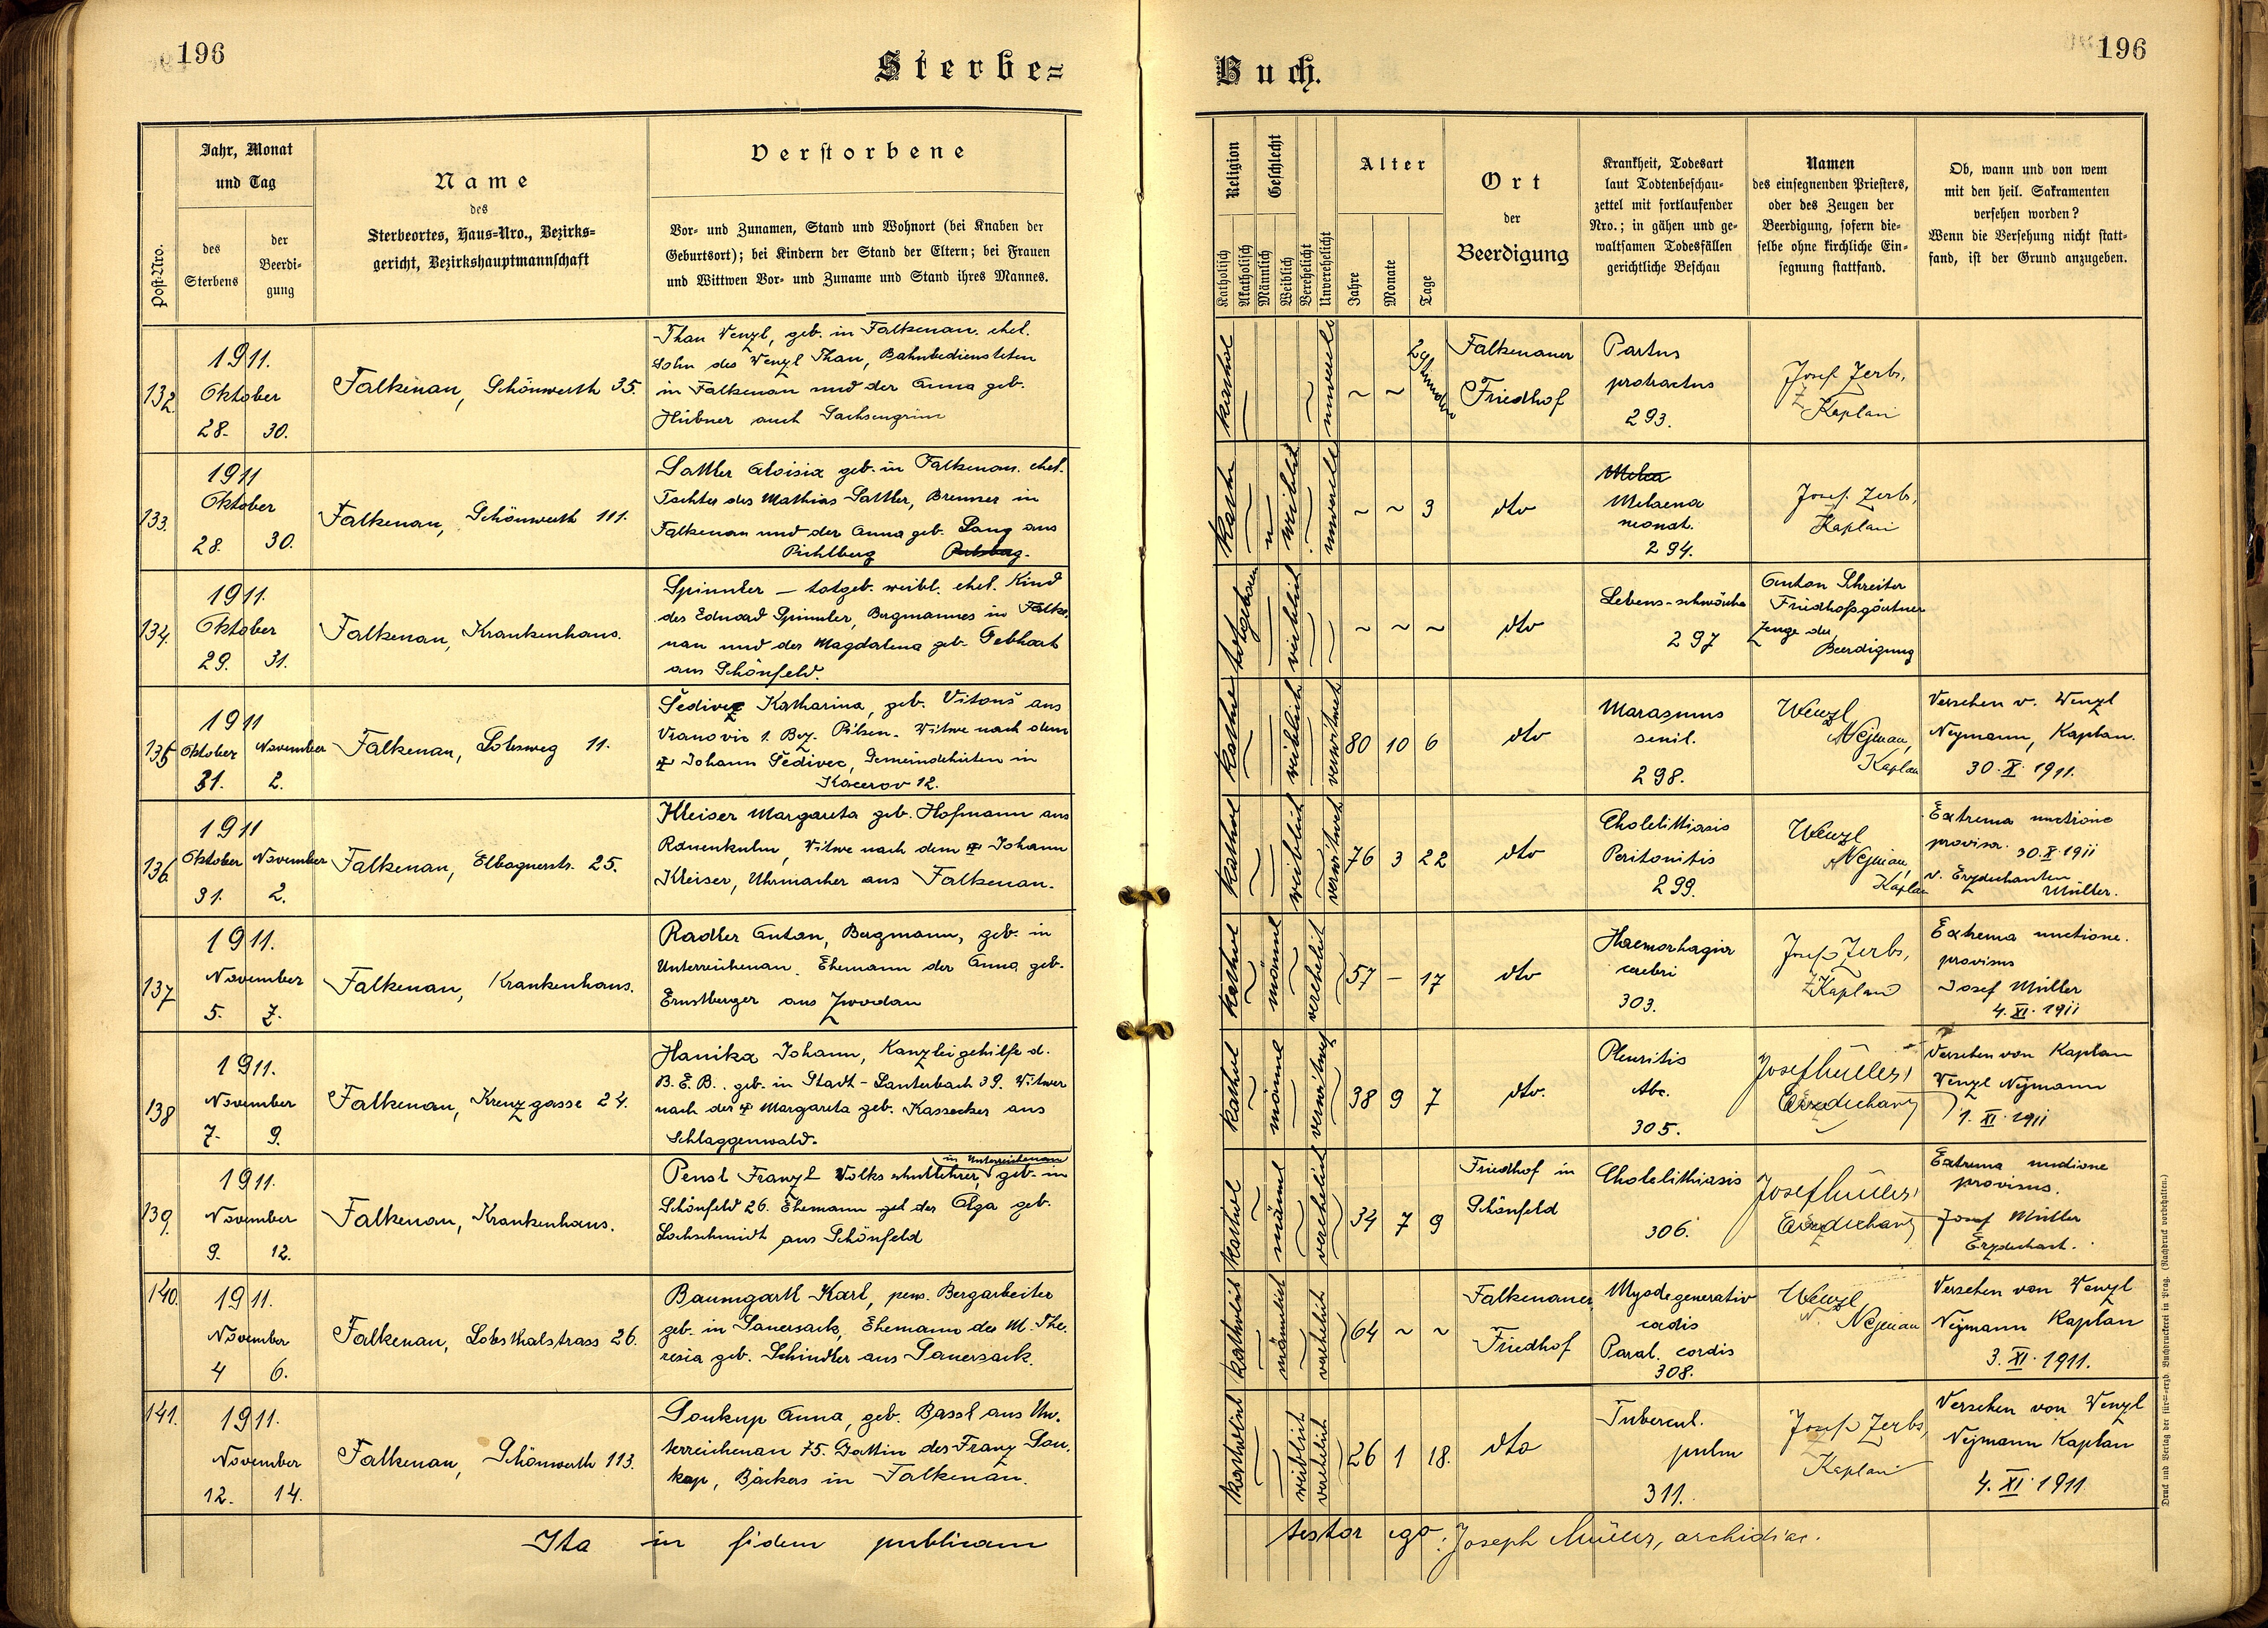 196
Sterbe=
Jahr, Monat
und Tag
des
Sterbens
der
Beerdi-
gung
Post-Nro.
Name
des
Sterbeortes, Haus-Nro., Bezirks-
gericht, Bezirkshauptmannschaft
Verstorbene
Vor- und Zunamen, Stand und Wohnort (bei Knaben der
Geburtsort); bei Kindern der Stand der Eltern; bei Frauen
und Wittwen Vor- und Zuname und Stand ihres Mannes.
132.
1911.
Oktober
28. 30.
Falkenau, Schönwerth 35.
Than Wenzl, geb. in Falkenau. ehel.
Sohn des Wenzl Than, Bahnbediensteten
in Falkenau und der Anna geb.
Hübner auch Sachsengrün
133.
1911
Oktober
28. 30.
Falkenau, Schönwerth 111.
Sattler Aloisia geb. in Falkenau. ehel.
Tochter des Mathias Sattler, Brenner in
Falkenau und der Anna geb. Lang aus
Pichlberg
134.
1911.
Oktober
29. 31.
Falkenau, Krankenhaus.
Spinnler — totgeb. weibl. ehel. Kind
des Eduard Spinnler, Bergmannes in Falke,
nau und der Magdalena geb. Gebhart
aus Schönfeld.
135
1911
Oktober November
31. 2.
Falkenau, Lobsweg 11.
Šedivez Katharina, geb. Vitouš aus
Vranovic 1. Bez. Pilsen. Witwe nach dem
Johann Šedivec, Gemeindehirten in
Kacerov 12.
136.
1911
Oktober November
31. 2.
Falkenau, Elbognerstr. 25.
Kleiser Margareta geb. Hofmann aus
Rauenkulm, Witwe nach dem Johann
Kleiser, Uhrmacher aus Falkenau.
137
1911.
November
5. 7.
Falkenau, Krankenhaus.
Radler Anton, Bergmann, geb. in
Unterreichenau. Ehemann der Anna geb.
Ernstberger aus Zwodau
138
1911.
November
7. 9.
Falkenau, Kreuzgasse 24.
Hanika Johann, Kanzleigehilfe d.
B. E. B., geb. in Stadt-Lauterbach 39. Witwer
nach der Margareta geb. Kassecker aus
Schlaggenwald.
139.
1911.
November
9. 12.
Falkenau, Krankenhaus.
in Unterreichenau
Pensl Franz Volksschullehrer, geb. in
Schönfeld 26. Ehemann der Olga geb.
Lochschmidt aus Schönfeld
140.
1911.
November
4 6.
Falkenau, Lobsthalstrass 26.
Baumgartl Karl, pens. Bergarbeiter
geb. in Sauersack, Ehemann der M. The,
resia geb. Schindler aus Sauersack.
141.
1911.
November
12. 14.
Falkenau, Schönwerth 113.
Soukup Anna, geb. Bassl aus Un,
terreichenau 75. Gattin des Franz Sou,
kup, Bäckers in Falkenau.
Ita in fidem publicam
196
Buch.
Religion
Katholisch
Akatholisch
Geschlecht
Männlich
Weiblich
Verehelicht
Unverehelicht
Alter
Jahre
Monate
Tage
Ort
der
Beerdigung
Krankheit, Todesart
laut Todtenbeschau-
zettel mit fortlaufender
Nro.; in gähen und ge-
waltsamen Todesfällen
gerichtliche Beschau
Namen
des einsegnenden Priesters,
oder des Zeugen der
Beerdigung, sofern die-
selbe ohne kirchliche Ein-
segnung stattfand.
Ob, wann und von wem
mit den heil. Sakramenten
versehen worden?
Wenn die Versehung nicht statt-
fand, ist der Grund anzugeben.
kathol
~ ~
Falkenauer
Friedhof
Partus
protractus
293.
Josef Zerbs,
Kaplan
kath
weiblich
~ ~ 3
dto
Melaena
neonat.
294.
Josef Zerbs,
Kaplan
totgeboren
weiblich
~ ~ ~
dto
Lebens-schwäche
297
Anton Schreiter
Friedhofsgärtner
Zeuge der
Beerdigung
weiblich
verwitwet
80 10 6
dto
Marasmus
senil.
298.
Wenzl
Nejman,
Kaplan
Versehen v. Wenzl
Nejmann, Kaplan.
30. X. 1911.
kathol
weiblich
verwitwet
76 3 22
dto
Cholelithiasis
Peritonitis
299.
Wenzl
Nejman,
Kaplan
Extrema unctione
provisa. 30. X. 1911
v. Erzdechanten
Müller.
kathol
männl
verehelicht
57 — 17
dto
Haemorhagia
cerebri
303.
Josef Zerbs,
Kaplan
Extrema unctione.
provisus
Josef Müller
4. XI. 1911
kathol
männl
verwitwet
38 9 7
dto.
Pleuritis
tbc.
305.
Josef Müller,
Erzdechant
Versehen von Kaplan
Wenzl Nejmann
1. XI. 1911
kathol
männl
verehelicht
34 7 9
Friedhof in
Schönfeld
Cholelithiasis
306.
Josef Müller,
Erzdechant
Extrema unctione
provisus.
Josef Müller
Erzdechant.
katholisch
männlich
verehelicht
64 ~ ~
Falkenauer
Friedhof
Myodegenerativ
cordis
Paral. cordis
308.
Wenzl
Nejman
Versehen von Wenzl
Nejmann Kaplan
3. XI. 1911.
katholisch
weiblich
verehelicht
26 1 18.
dto
Tubercul.
pulm
311.
Josef Zerbs,
Kaplan
Versehen von Wenzl
Nejmann Kaplan
4. XI. 1911
testor ego: Joseph Müller, archidiac.
Druck und Verlag der fürst-erzb. Buchdruckerei in Prag. (Nachdruck vorbehalten.)